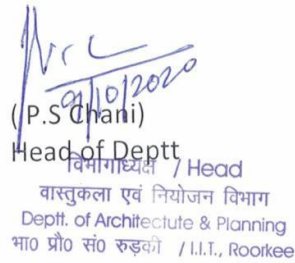 09/10/2020
(P.S Chani)
Head of Deptt
विभागाध्यक्ष / Head
वास्तुकला एवं नियोजन विभाग
Deptt. of Architectute & Planning
भा० प्रौ० सं० रुड़की / I.I.T., Roorkee